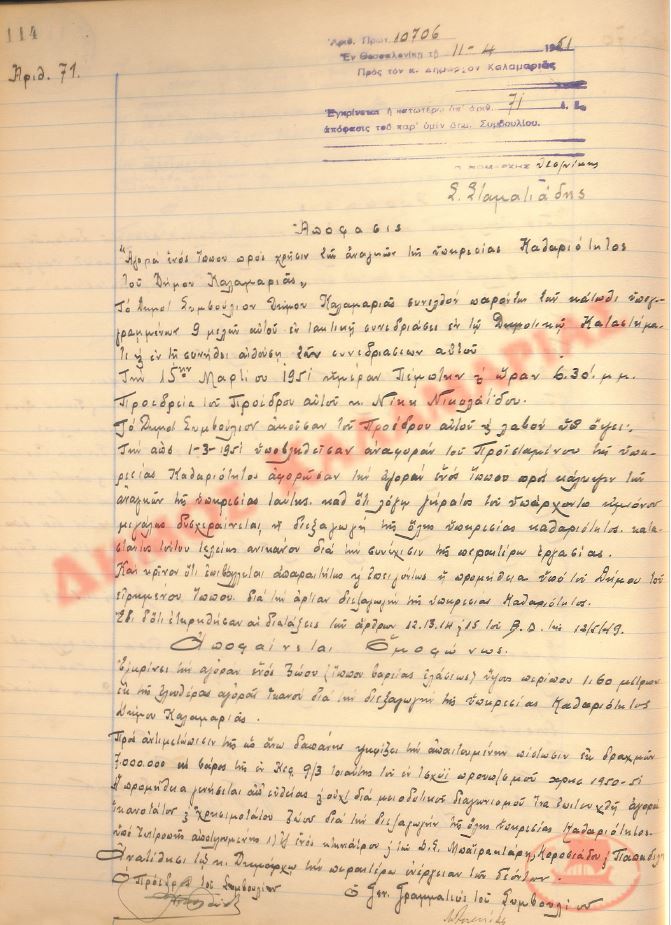 114
Ἀριθ. 71.
Ἀριθ. Πρωτ. 10706
Ἐν Θεσσαλονίκῃ τῇ 11-4 1951
Πρὸς τὸν κ. Δήμαρχον Καλαμαριᾶς
Ἐγκρίνεται ἡ κατωτέρω ὑπ' ἀριθ. 71
ἀπόφασις τοῦ παρ' ὑμῖν Δημ. Συμβουλίου.
Ὁ ΝΟΜΑΡΧΗΣ
Σ. Σταματιάδης
Ἀπόφασις
"Ἀγορὰ ἑνὸς ἵππου πρὸς χρῆσιν τῶν ἀναγκῶν τῆς ὑπηρεσίας Καθαριότητος
τοῦ Δήμου Καλαμαριᾶς"
Τὸ Δημοτ. Συμβούλιον Δήμου Καλαμαριᾶς συνελθὸν παρόντων τῶν κάτωθι ὑπογε-
γραμμένων 9 μελῶν αὐτοῦ ἐν τακτικῇ συνεδριάσει ἐν τῷ Δημοτικῷ Καταστήμα-
τι ἐν τῇ συνήθει αἰθούσῃ τῶν συνεδριάσεων αὐτοῦ
Τὴν 15ην Μαρτίου 1951 ἡμέραν Πέμπτην ὥραν 6.30' μ.μ.
Προεδρείᾳ τοῦ Προέδρου αὐτοῦ κ. Νίκη Νικολαΐδου.
Τὸ Δημοτ. Συμβούλιον ἀκοῦσαν τοῦ Προέδρου αὐτοῦ λαβὸν ὑπ' ὄψει.
Τὴν ἀπὸ 1-3-1951 ὑποβληθεῖσαν ἀναφορὰν τοῦ Προϊσταμένου τῆς ὑπη-
ρεσίας Καθαριότητος ἀφορῶσαν τὴν ἀγορὰν ἑνὸς ἵππου πρὸς κάλυψιν τῶν
ἀναγκῶν τῆς ὑπηρεσίας ταύτης, καθ' ὅτι λόγῳ γήρατος τοῦ ὑπάρχοντος ἡμιόνου
μεγάλως δυσχεραίνεται ἡ διεξαγωγὴ τῆς ὅλης ὑπηρεσίας καθαριότητος, κατα-
στάντος τούτου τελείως ἀνικάνου διὰ τὴν συνέχισιν τῆς περαιτέρω ἐργασίας.
Καὶ κρῖνον ὅτι ἐπιβάλλεται ἀπαραιτήτως ἡ προμήθεια ὑπὸ τοῦ Δήμου τοῦ
εἰρημένου ἵππου διὰ τὴν ἀρτίαν διεξαγωγὴν τῆς ὑπηρεσίας Καθαριότητος.
Ἐπειδὴ ἐτηρήθησαν αἱ διατάξεις τῶν ἄρθρων 12.13.14 15 τοῦ Β.Δ. τῆς 12/5/49.
Ἀποφαίνεται Ὁμοφώνως.
Ἐγκρίνει τὴν ἀγορὰν ἑνὸς ζώου (ἵππου βαρείας ἐλάσεως) ὕψους περίπου 1,60 μέτρων
ἐκ τῆς ἐλευθέρας ἀγορᾶς ἱκανοῦ διὰ τὴν διεξαγωγὴν τῆς ὑπηρεσίας Καθαριότητος
Δήμου Καλαμαριᾶς.
Πρὸς ἀντιμετώπισιν τῆς ὡς ἄνω δαπάνης ψηφίζει τὴν ἀπαιτουμένην πίστωσιν ἐκ δραχμῶν
.000.000 εἰς βάρος τῆς ἐν Κεφ. 9/3 τοιαύτης τοῦ ἐν ἰσχύϊ προϋπ/σμοῦ χρήσ. 1950-51
Ἡ προμήθεια γενήσεται ἀπ' εὐθείας οὐχὶ διὰ μειοδοτικοῦ διαγωνισμοῦ ἵνα ἐπιτευχθῇ ἀγορὰ
ἱκανοτάτου χρησιμοτάτου ζώου διὰ τὴν διεξαγωγὴν τῆς ὅλης ὑπηρεσίας Καθαριότητος
ὑπὸ Ἐπιτροπῆς ἀποτελουμένης ἑνὸς κτηνιάτρου τῶν Δ.Σ. Μπαϊρακτάρη,
Ἀνατίθησι τῷ κ. Δημάρχῳ τὴν περαιτέρω ἐνέργειαν τῶν δεόντων.
Ὁ Πρόεδρος τοῦ Συμβουλίου
Ὁ Γεν. Γραμματεὺς τοῦ Συμβουλίου
ΔΗΜΟΣ ΚΑΛΑΜΑΡΙΑΣ